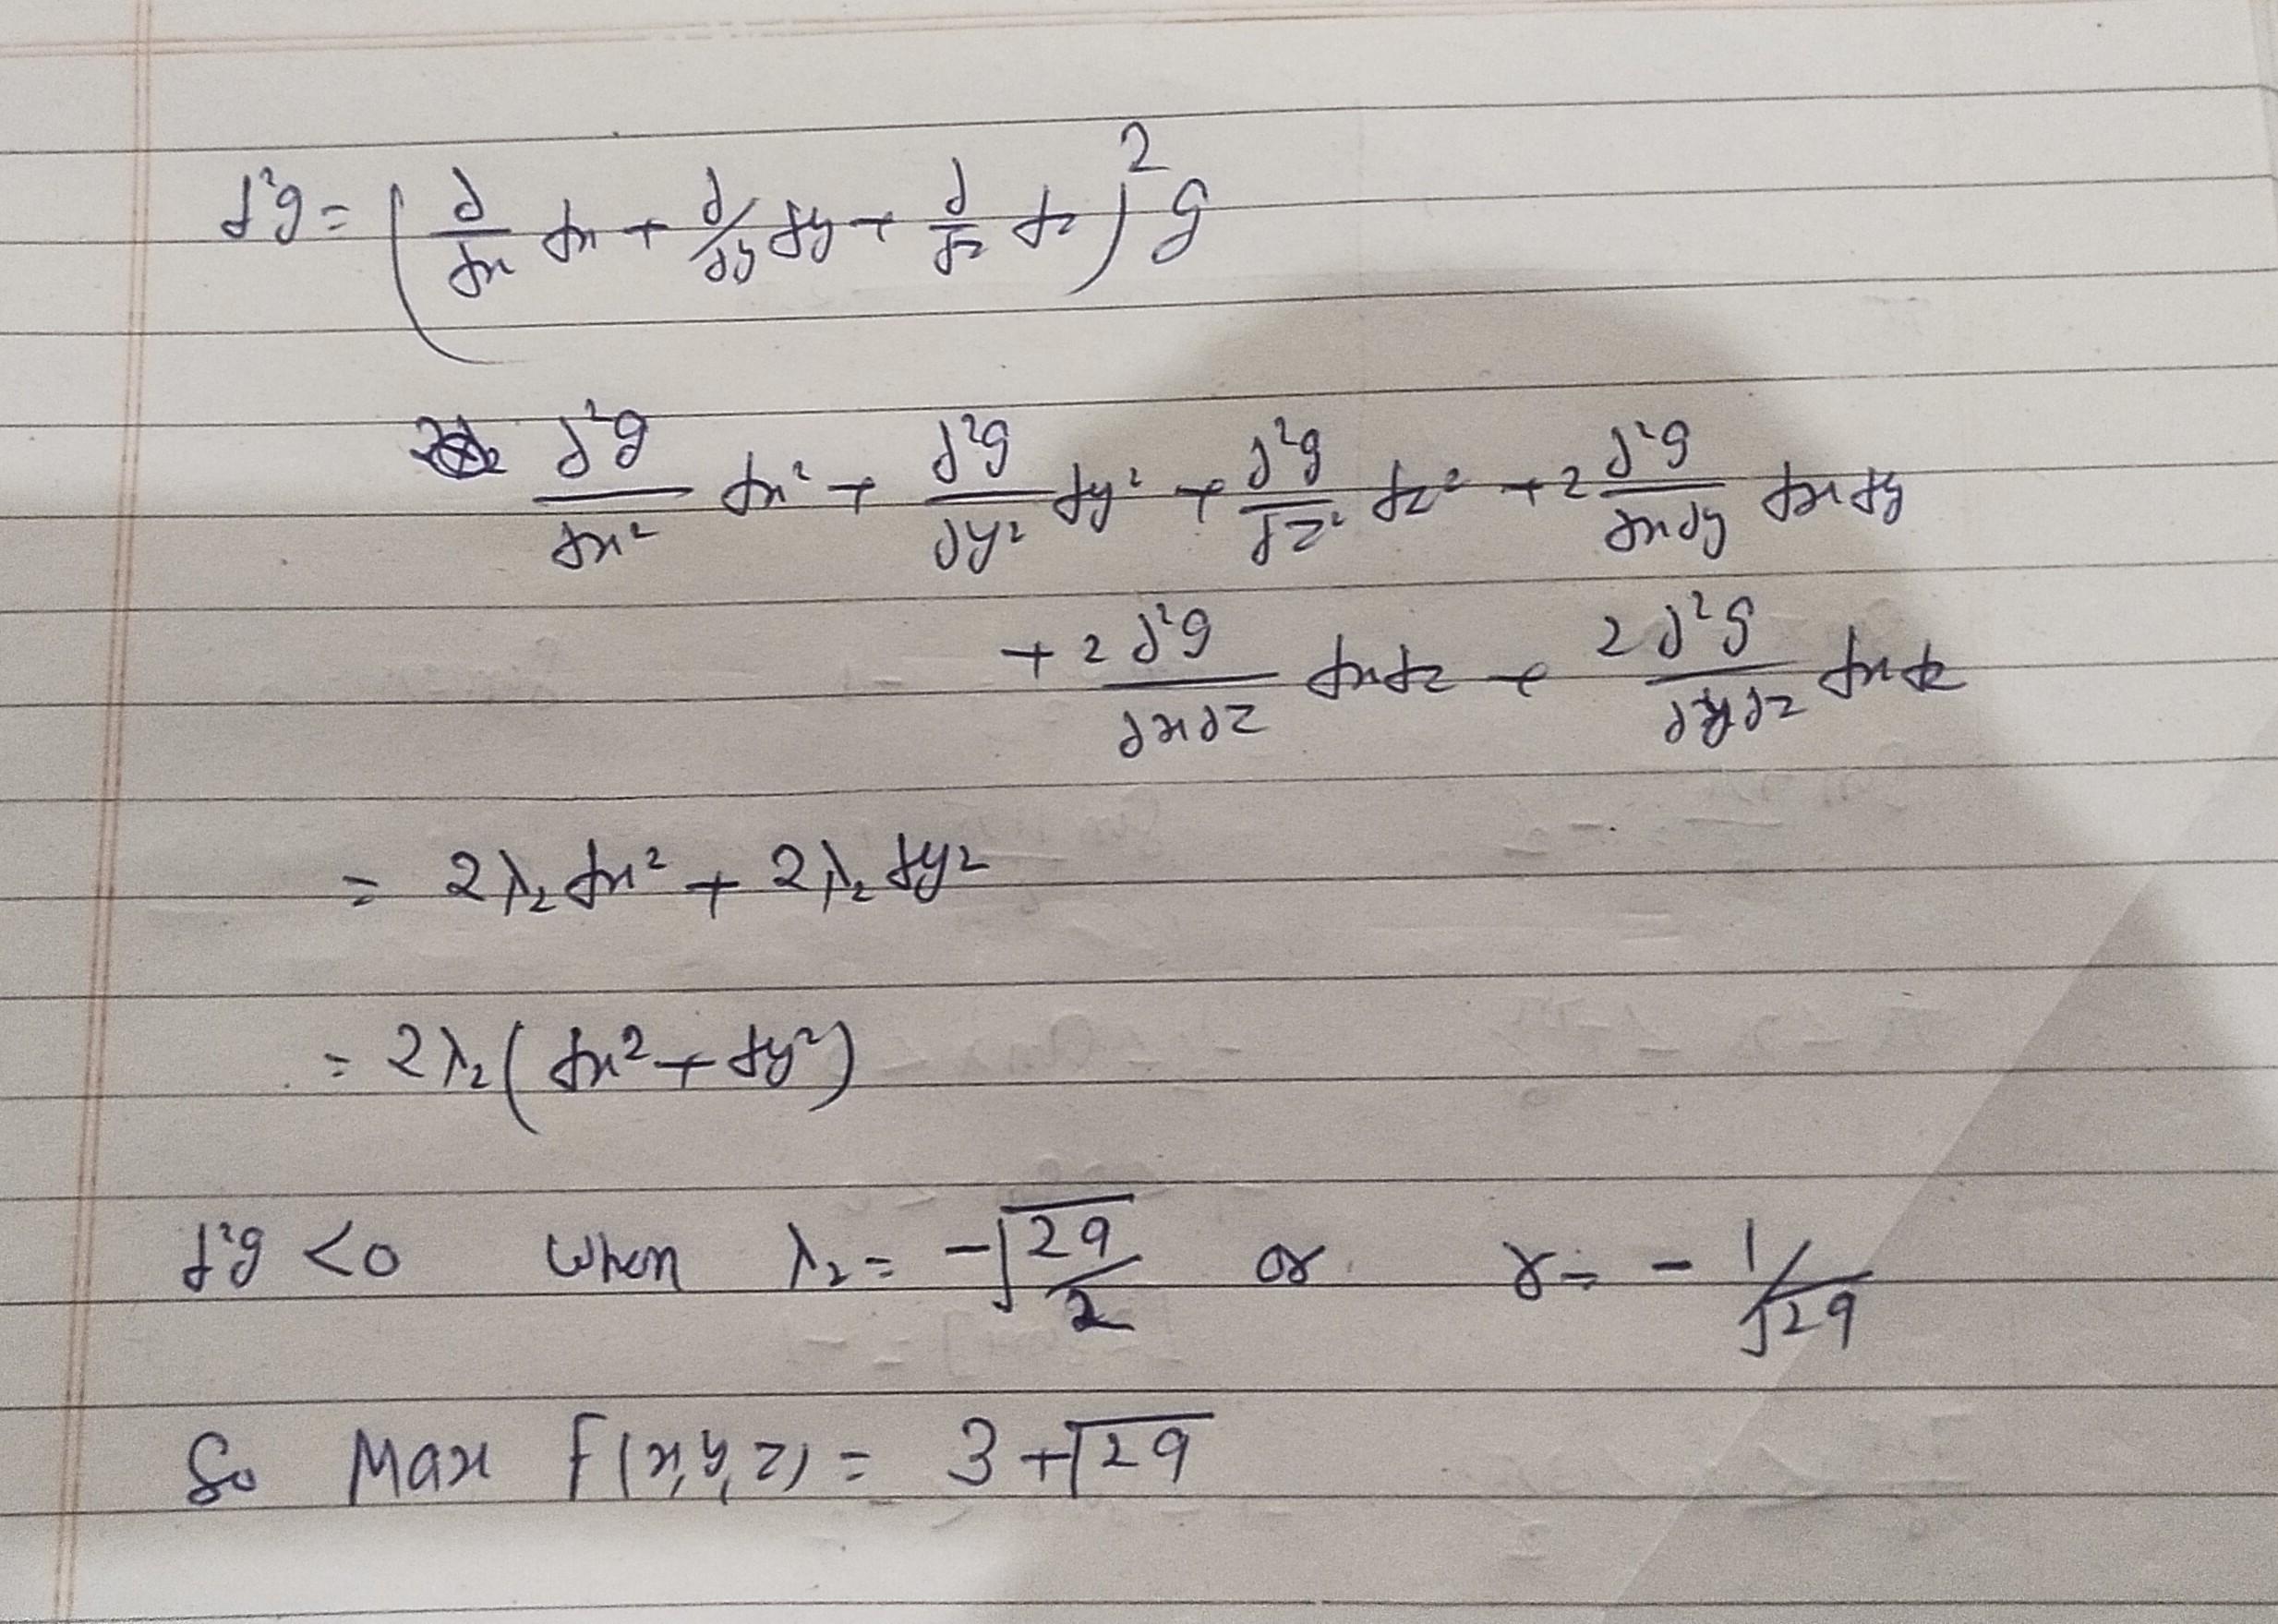 d²g = (∂/∂x dx + ∂/∂y dy + ∂/∂z dz)² g
∂²g/∂x² dx² + ∂²g/∂y² dy² + ∂²g/∂z² dz² + 2 ∂²g/∂x∂y dx dy
+ 2 ∂²g/∂x∂z dx dz + 2 ∂²g/∂y∂z dx dz
= 2λ₂ dx² + 2λ₂ dy²
= 2λ₂ (dx² + dy²)
d²g < 0 when λ₂ = -√29/2 or r = -1/√29
So Max F(x, y, z) = 3 + √29